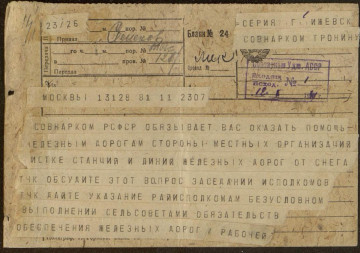 23/25
Бланк № 24
СЕРИЯ Г ИЖЕВСК
СОВНАРКОМ ТРОНИНУ
Принял
Передал
МОСКВЫ 13128 81 11 2307
СОВНАРКОМ РСФСР ОБЯЗЫВАЕТ ВАС ОКАЗАТЬ ПОМОЩЬ
ЖЕЛЕЗНЫМ ДОРОГАМ СТОРОНЫ МЕСТНЫХ ОРГАНИЗАЦИЙ
ИСТКЕ СТАНЦИЯ И ЛИНИЙ ЖЕЛЕЗНЫХ ДОРОГ ОТ СНЕГА
ТЧК ОБСУДИТЕ ЭТОТ ВОПРОС ЗАСЕДАНИИ ИСПОЛКОМОВ
ТЧК ДАЙТЕ УКАЗАНИЕ РАЙИСПОЛКОМАМ БЕЗУСЛОВНОМ
ВЫПОЛНЕНИИ СЕЛЬСОВЕТАМИ ОБЯЗАТЕЛЬСТВ
ОБЕСПЕЧЕНИЯ ЖЕЛЕЗНЫХ ДОРОГ И РАБОЧЕЙ